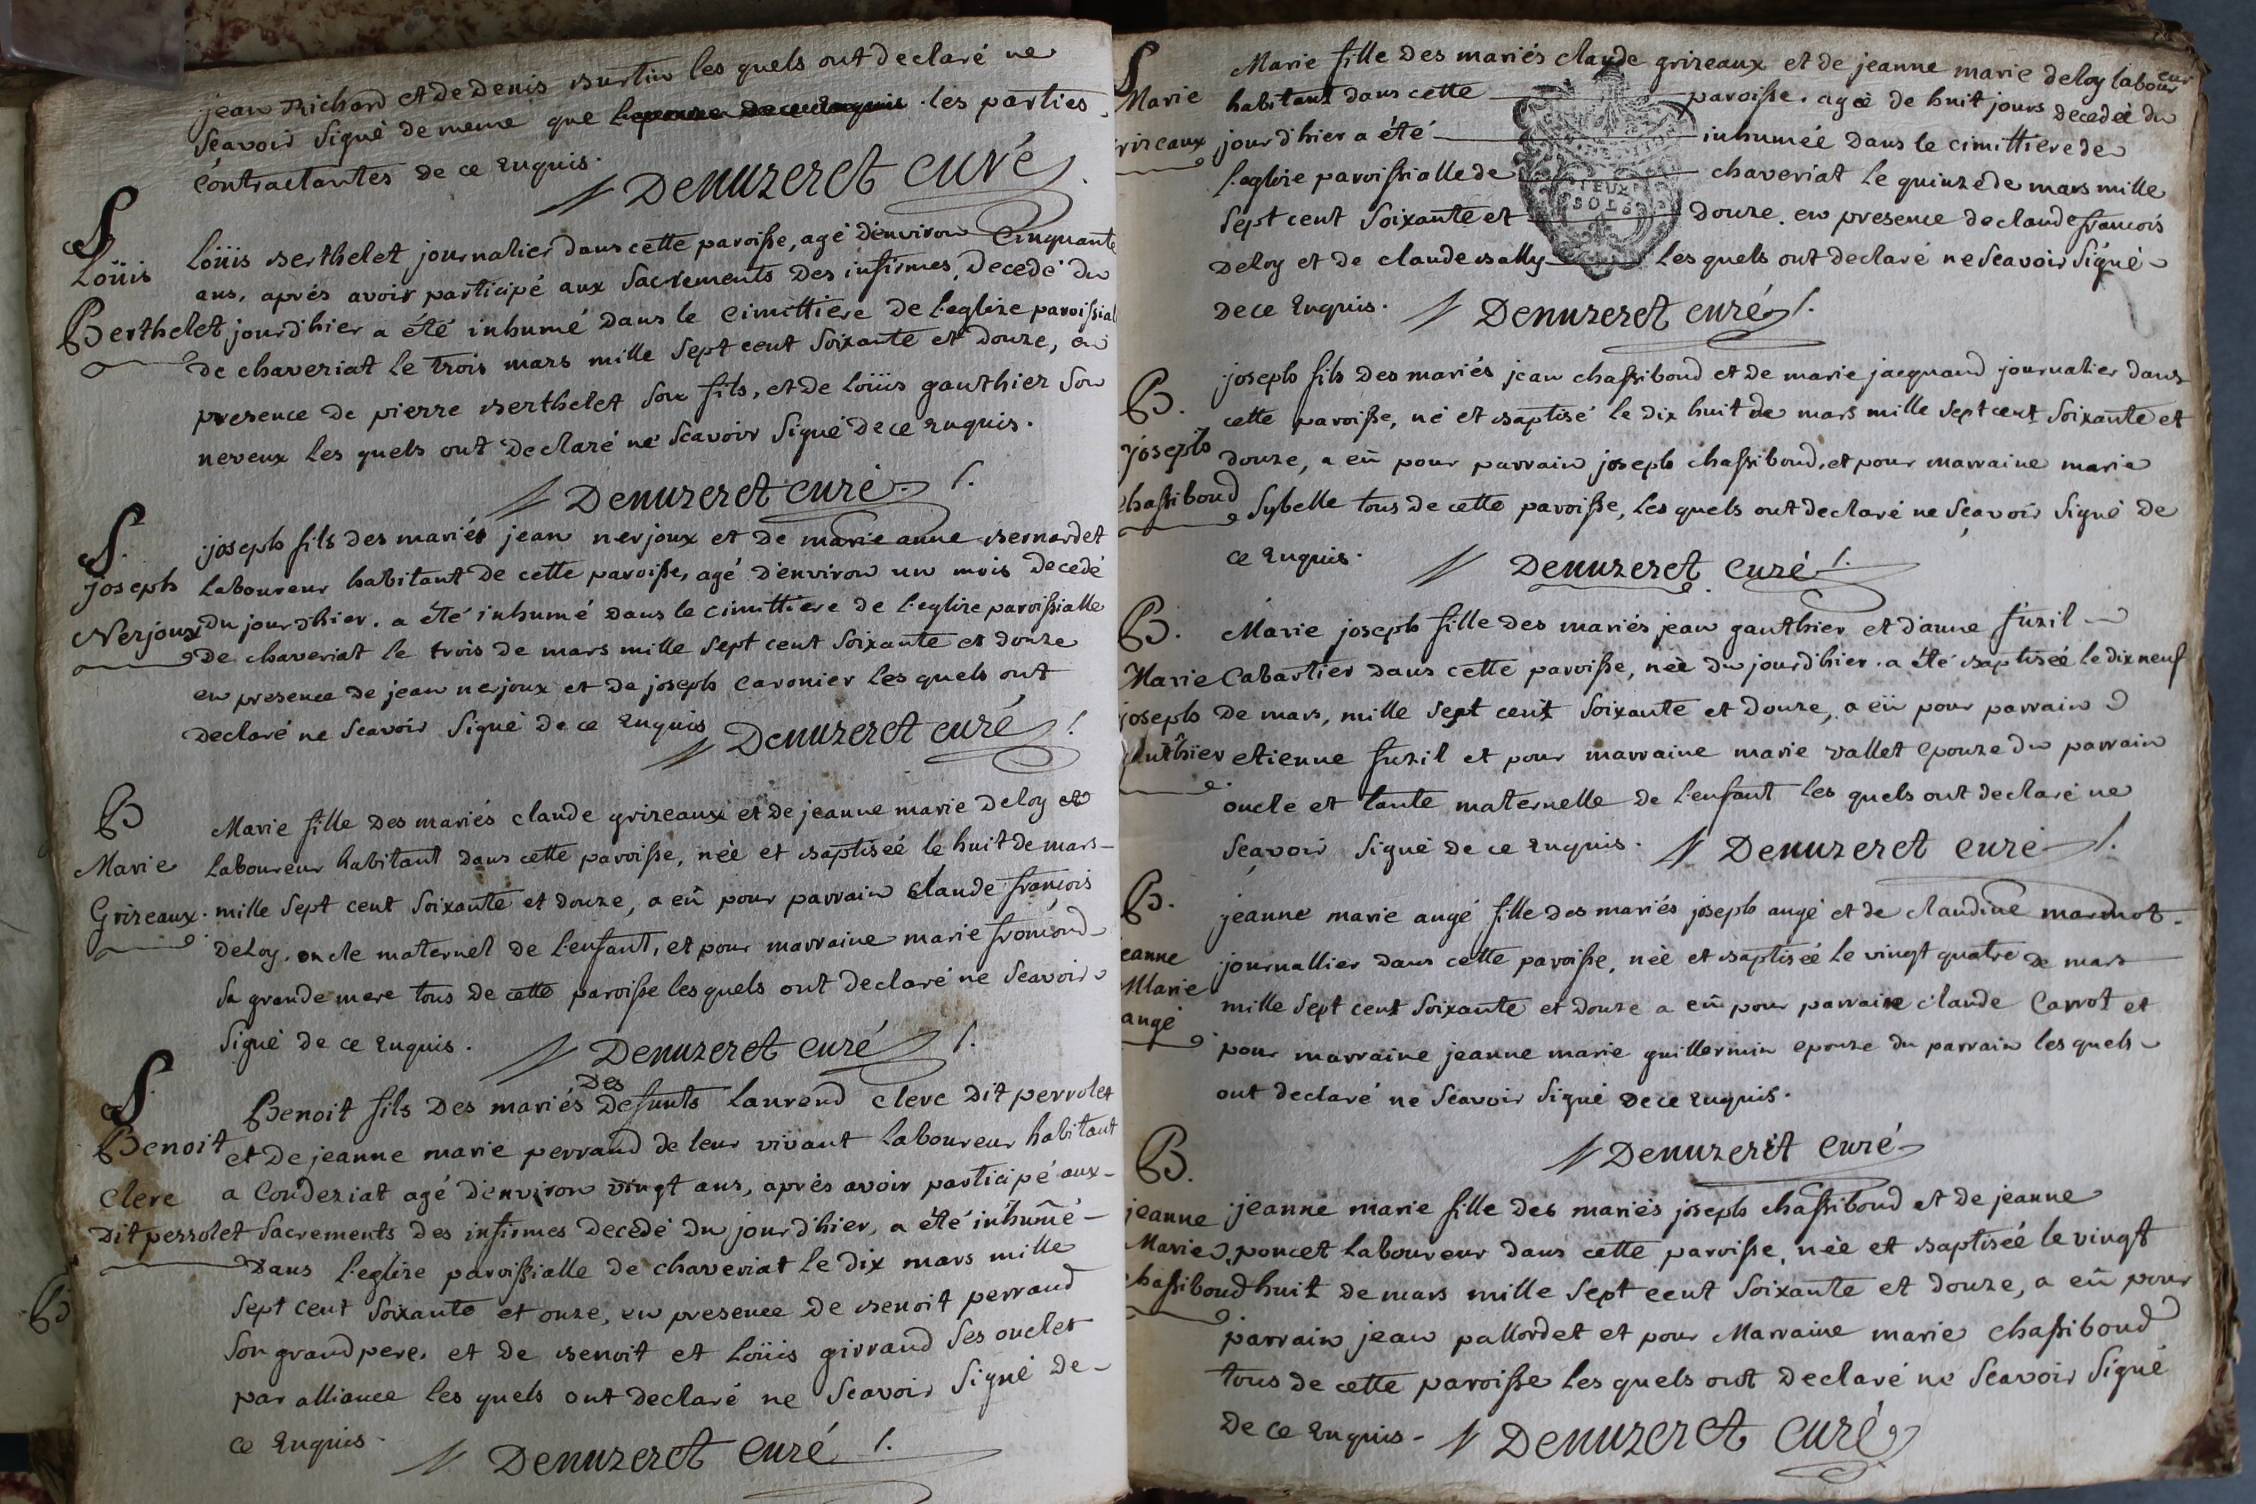 jean Richard et de Denis Burtin les quels ont declaré ne
Scavoir Signé de meme que les parties
contractantes de ce Enquis.
Denuzeret curé
S
Loüis
Berthelet
Loüis Berthelet journalier dans cette paroisse, agé d'environ Cinquante
ans, aprés avoir participé aux Sacrements des infirmes, decedé du
jourd'hier a été inhumé dans le cimittiere de L'eglize paroissial
de chaveriat le trois mars mille Sept cent Soixante et douze, en
presence de pierre Berthelet Son fils, et de Loüis gauthier Son
neveux les quels ont declaré ne Scavoir Signé de ce Enquis.
Denuzeret curé
S.
joseph
Nerjoux
joseph fils des mariés jean nerjoux et de marie anne Bernardet
Laboureur habitant de cette paroisse, agé d'environ un mois decedé
du jourd'hier. a été inhumé dans le cimittiere de L'eglize paroissialle
de chaveriat le trois de mars mille Sept cent Soixante et douze
en presence de jean nerjoux et de joseph Caronier les quels ont
declaré ne Scavoir Signé de ce Enquis
Denuzeret curé
B
Marie
Grizeaux.
Marie fille des mariés claude grizeaux et de jeanne marie deloy et
Laboureur habitant dans cette paroisse, néé et Baptiséé le huit de mars
mille Sept cent Soixante et douze, a eû pour parrain claude françois
deloy. oncle maternel de L'enfant, et pour marraine marie fromond
Sa grande mere tous de cette paroisse les quels ont declaré ne Scavoir
Signé de ce Enquis.
Denuzeret curé
S.
Benoit
Clerc
dit perrolet
Benoit fils des mariés des defunts Laurend clerc dit perrolet
et de jeanne marie perraud de leur vivant Laboureur habitant
a Condeziat agé d'environ vingt ans, aprés avoir participé aux
Sacrements des infirmes decedé du jourd'hier, a été inhumé
dans L'eglize paroissialle de chaveriat le dix mars mille
Sept cent Soixante et onze, en presence de Benoit perraud
Son grand pere, et de Benoit et Loüis girraud Ses oncles
par alliance les quels ont declaré ne Scavoir Signé de
ce Enquis.
Denuzeret curé
S
Marie
rizeaux
Marie fille des mariés claude grizeaux et de jeanne marie deloy laboureur
habitant dans cette paroisse. agéé de huit jours decedéé du
jourd'hier a été inhuméé dans le cimittiere de
L'eglize paroissialle de chaveriat le quinze de mars mille
Sept cent Soixante et douze. en presence de claude francois
deloy et de claude Bally les quels ont declaré ne Scavoir Signé
de ce Enquis.
DEUX
SOLS
Denuzeret curé
B.
joseph
chassiboud
joseph fils des mariés jean chassiboud et de marie jacquand journalier dans
cette paroisse, né et Baptisé le dix huit de mars mille Sept cent Soixante et
douze, a eû pour parrain joseph chassiboud, et pour marraine marie
Sybelle tous de cette paroisse, les quels ont declaré ne Scavoir Signé de
ce Enquis.
Denuzeret curé
B.
Marie
joseph
Marie joseph fille des mariés jean gauthier et d'anne fuzil
Cabartier dans cette paroisse, néé du jourd'hier. a été Baptiséé le dix neuf
de mars, mille Sept cent Soixante et douze, a eü pour parrain
etienne fuzil et pour marraine marie vallet epouze du parrain
oncle et tante maternelle de L'enfant les quels ont declaré ne
Scavoir Signé de ce Enquis.
Denuzeret curé
B.
eanne
Marie
angé
jeanne marie angé fille des mariés joseph angé et de claudine marmot
journallier dans cette paroisse, néé et Baptiséé le vingt quatre de mars
mille Sept cent Soixante et douze a eû pour parrain claude Carrot et
pour marraine jeanne marie guillermin epouze du parrain les quels
ont declaré ne Scavoir Signé de ce Enquis.
Denuzeret curé
B.
jeanne
Marie
hassiboud
jeanne marie fille des mariés joseph chassiboud et de jeanne
poncet Laboureur dans cette paroisse, néé et Baptiséé le vingt
huit de mars mille Sept cent Soixante et douze, a eû pour
parrain jean pallordet et pour Marraine marie chassiboud
tous de cette paroisse les quels ont declaré ne Scavoir Signé
de ce Enquis.
Denuzeret curé